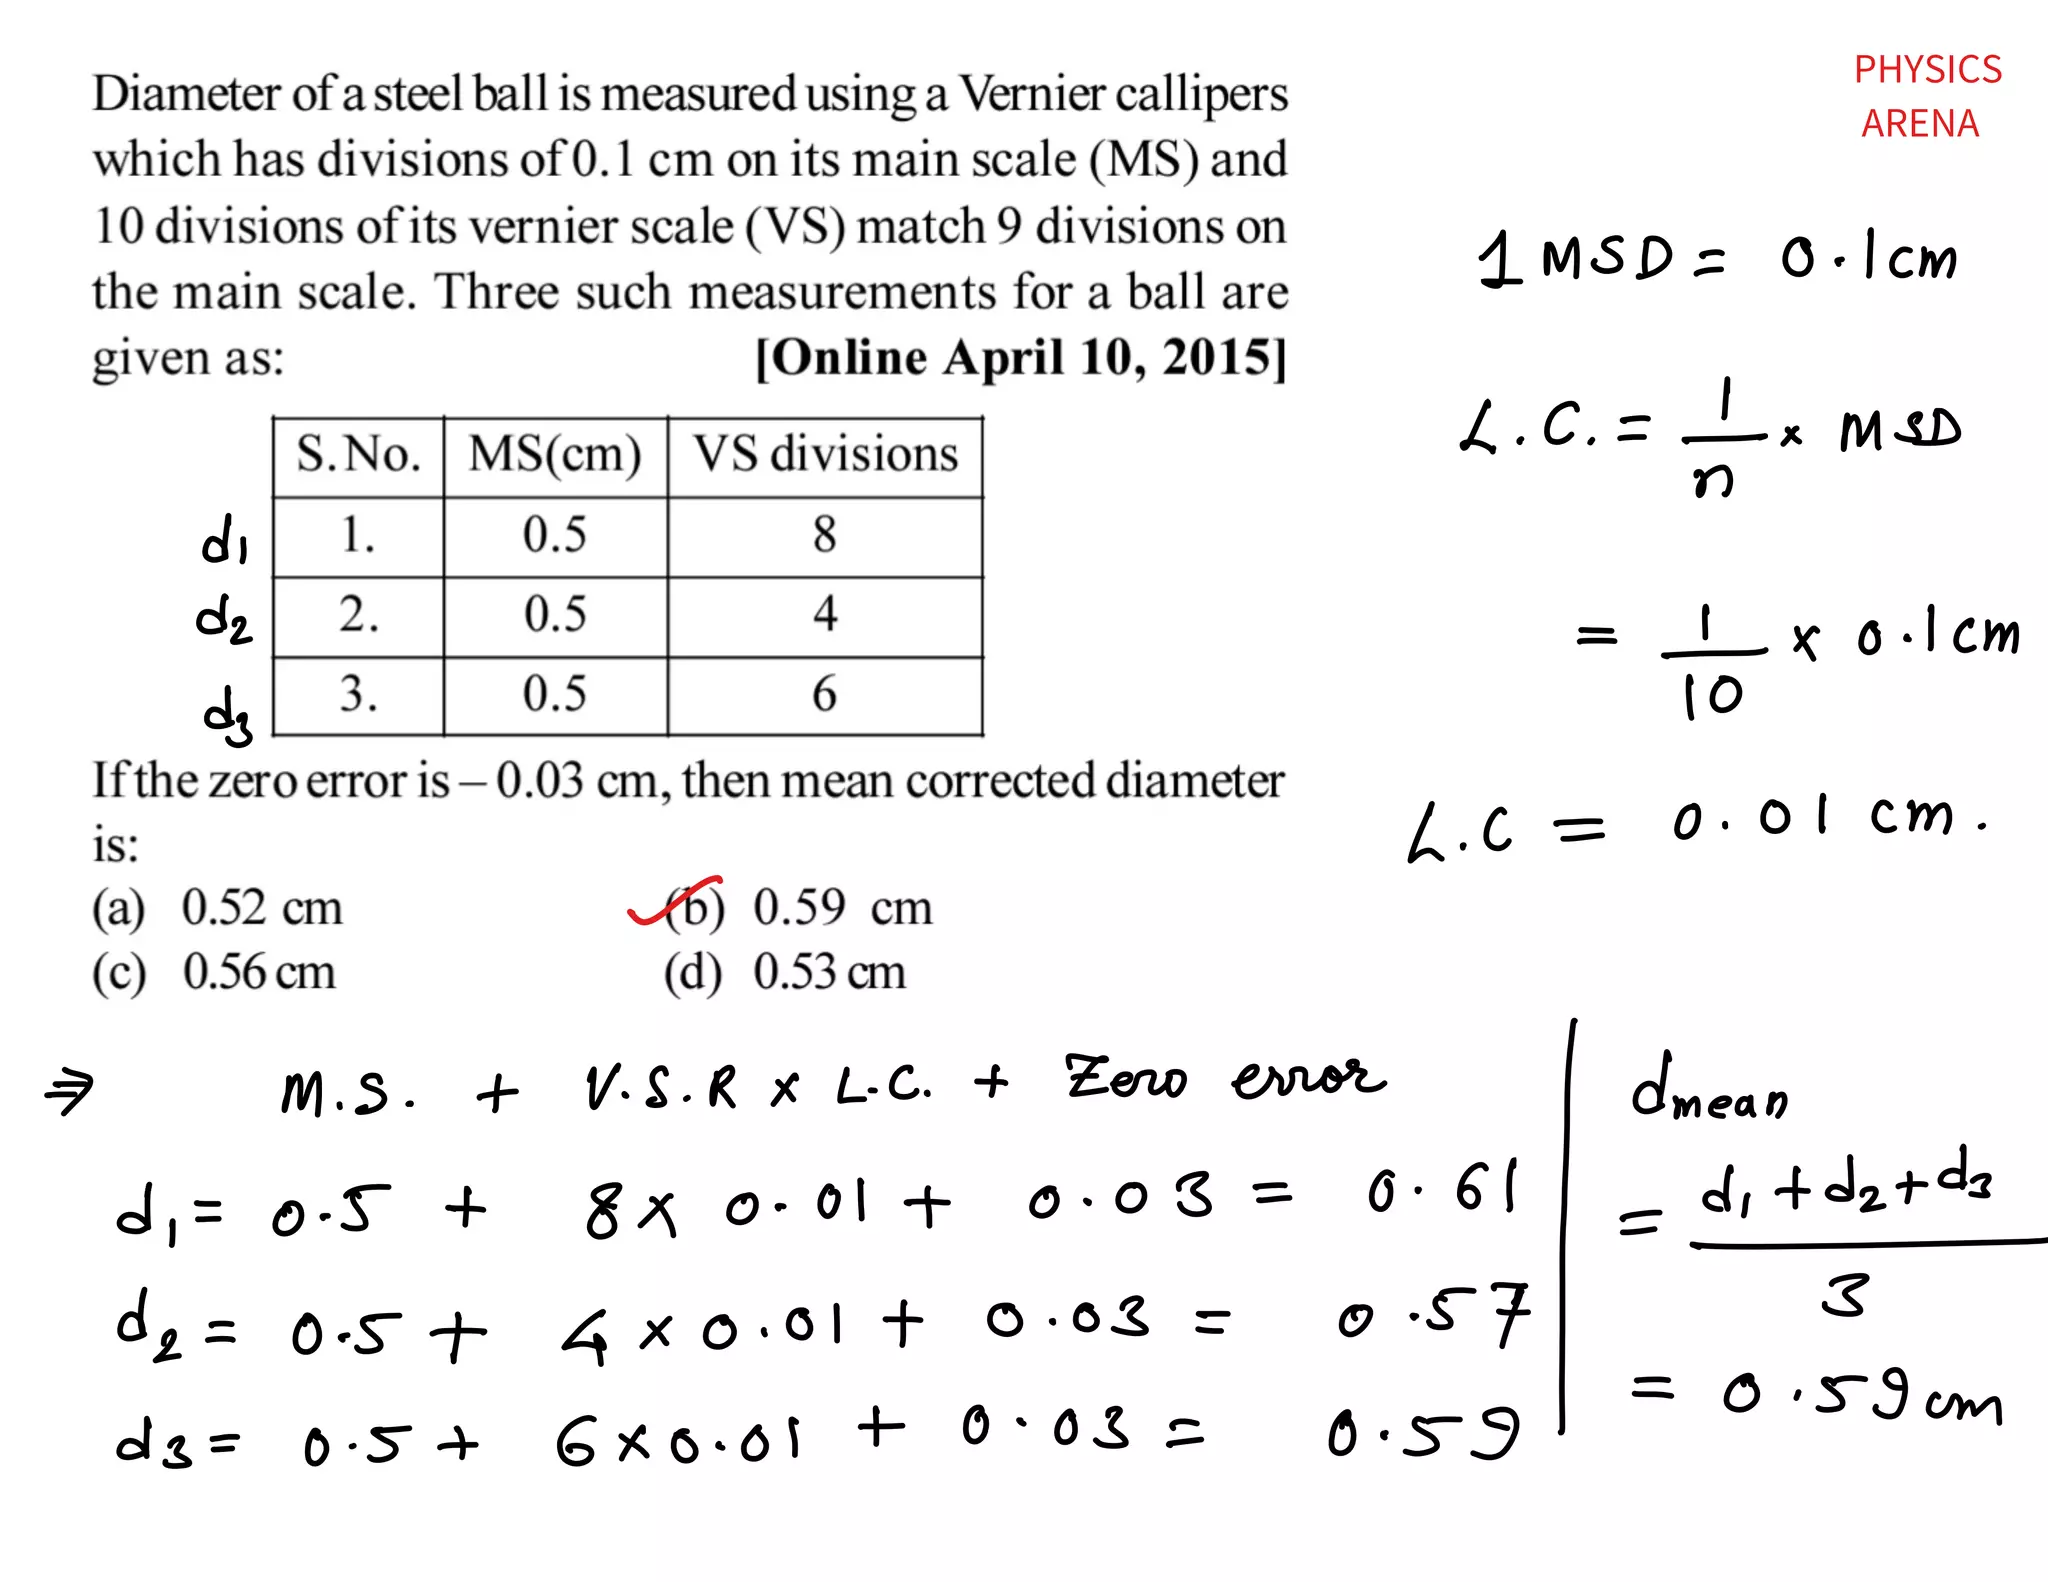 PHYSICS
ARENA
Diameter of a steel ball is measured using a Vernier callipers
which has divisions of 0.1 cm on its main scale (MS) and
10 divisions of its vernier scale (VS) match 9 divisions on
the main scale. Three such measurements for a ball are
given as: [Online April 10, 2015]
S.No. MS(cm) VS divisions
d1 1. 0.5 8
d2 2. 0.5 4
d3 3. 0.5 6
If the zero error is – 0.03 cm, then mean corrected diameter
is:
(a) 0.52 cm (b) 0.59 cm
(c) 0.56 cm (d) 0.53 cm
1 MSD = 0.1cm
L.C. = 1/n × MSD
= 1/10 × 0.1cm
L.C = 0.01 cm.
⇒ M.S. + V.S.R × L.C. + Zero error
d1 = 0.5 + 8 × 0.01 + 0.03 = 0.61
d2 = 0.5 + 4 × 0.01 + 0.03 = 0.57
d3 = 0.5 + 6 × 0.01 + 0.03 = 0.59
dmean
= d1 + d2 + d3
3
= 0.59cm